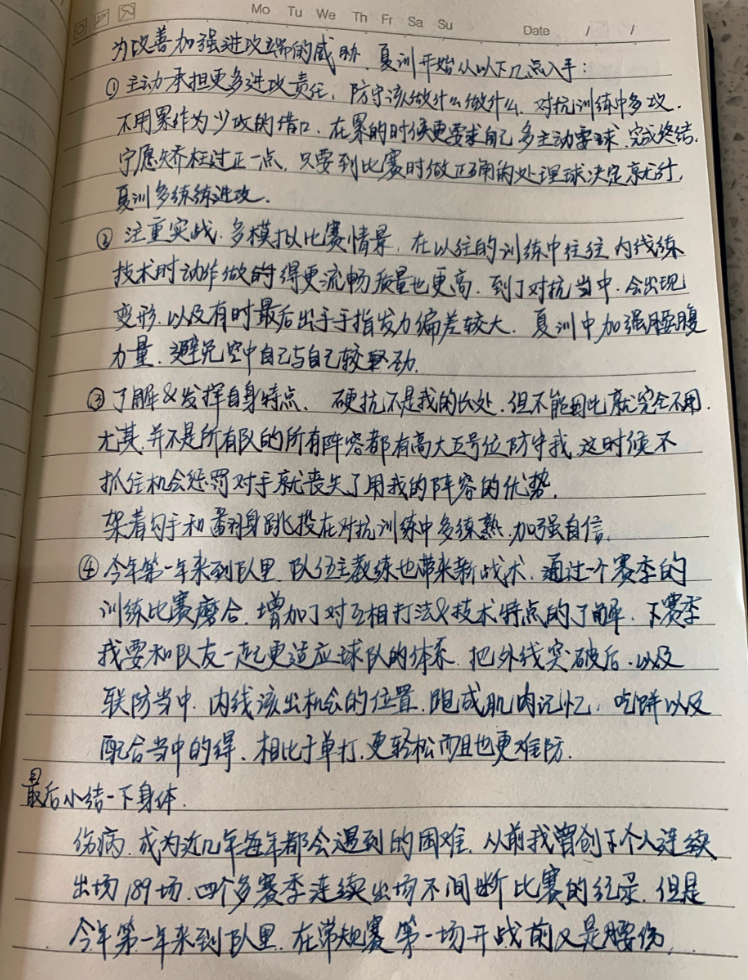 Mo Tu We Th Fr Sa Su Date / /
为改善加强进攻端的威胁,夏训开始从以下几点入手:
①主动承担更多进攻责任,防守该做什么做什么,对抗训练中多攻.
不用累作为少攻的借口,在累的时候更要求自己多主动要球,完成终结.
宁愿矫枉过正一点,只要到比赛时做正确的处理球决定就行,
夏训多练练进攻.
②注重实战,多模拟比赛情景,在以往的训练中往往内线练
技术时动作做的得更流畅质量也更高,到了对抗当中,会出现
变形,以及有时最后出手手指发力偏差较大.夏训中加强腰腹
力量,避免空中自己与自己较劲.
③了解&发挥自身特点. 硬抗不是我的长处,但不能因此就完全不用.
尤其,并不是所有队的所有阵容都有高大五号位防守我,这时候不
抓住机会惩罚对手就丧失了用我的阵容的优势.
架着勾手和翻身跳投在对抗训练中多练熟,加强自信.
④今年第一年来到队里,队伍主教练也带来新战术,通过一个赛季的
训练比赛磨合,增加了对互相打法&技术特点的了解,下赛季
我要和队友一起更适应球队的体系,把外线突破后,以及
联防当中,内线该出机会的位置,跑成肌肉记忆,吃饼以及
配合当中的得,相比于单打,更轻松而且也更难防.
最后小结一下身体.
伤病,成为近几年每年都会遇到的困难,从前我曾创下个人连续
出场189场,四个多赛季连续出场不间断比赛的纪录,但是
今年第一年来到队里,在常规赛第一场开战前又是腰伤,